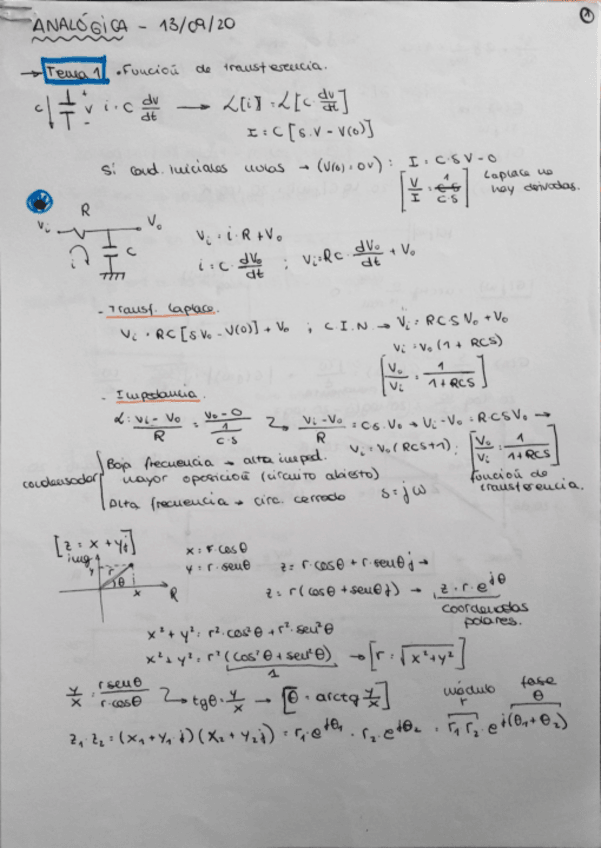 ①
ANALÓGICA - 13/09/20
→ Tema 1 • Función de transferencia.
C V i = C dv/dt → L[i] = L[C dv/dt]
I = C[S.V - V(0)]
Si cond. iniciales nulas → (V(0) = 0V) : I = C·S V - 0
[V/I = 1/C·S] Laplace no hay derivadas.
R
Vi Vo
i C
Vi = i·R + Vo
i = C· dVo/dt ; Vi = RC· dVo/dt + Vo
- Transf. Laplace.
Vi = RC[S Vo - V(0)] + Vo ; C.I.N → Vi = RCS Vo + Vo
Vi = Vo(1 + RCS)
[Vo/Vi = 1/1+RCS]
- Impedancia.
Vi - Vo/R = Vo - 0/1/C·S → Vi - Vo/R = CS·Vo → Vi - Vo = RCSVo →
Vi = Vo(RCS+1); [Vo/Vi = 1/1+RCS]
función de transferencia.
condensador
Baja frecuencia → alta imped.
mayor oposición (circuito abierto)
Alta frecuencia → circ. cerrado S = jω
[z = x + yj]
img
y r θ x R
x = r·cosθ
y = r·senθ z = r·cosθ + r·senθj →
z = r(cosθ + senθj) → z = r·e^jθ
coordenadas polares.
x² + y² = r²·cos²θ + r²·sen²θ
x² + y² = r²(cos²θ + sen²θ) → [r = √x²+y²]
1
y/x = r senθ/r·cosθ → tgθ = y/x → [θ = arctg y/x]
módulo r fase θ
z₁·z₂ = (x₁ + y₁·j)(x₂ + y₂j) = r₁·e^jθ₁ · r₂·e^jθ₂ = r₁r₂·e^j(θ₁+θ₂)